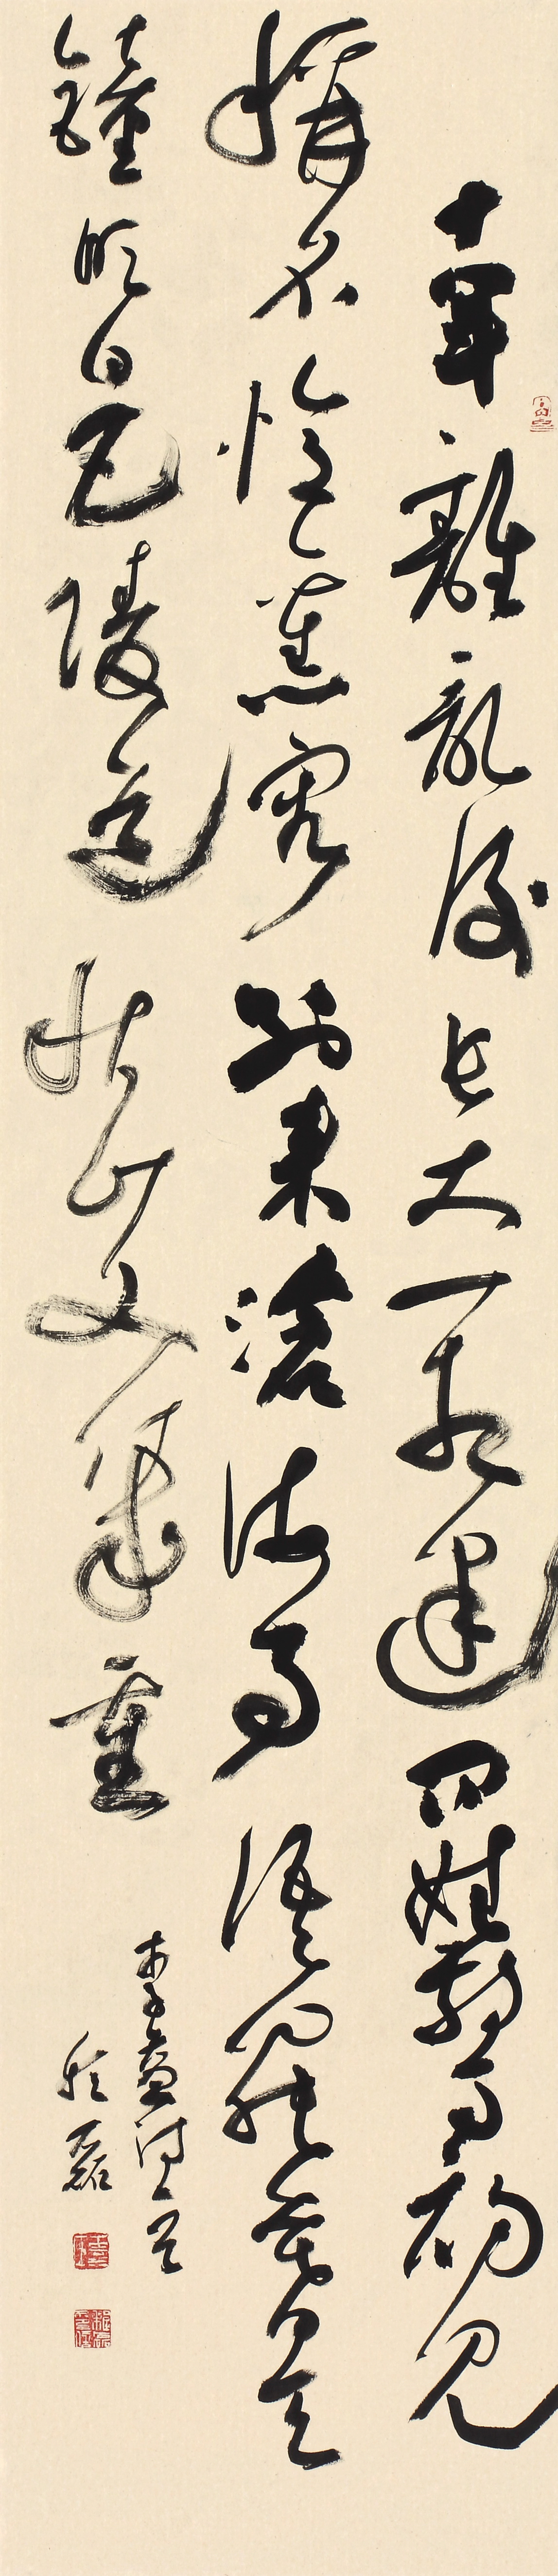 十年離亂後長大一相逢問姓驚初見
稱名憶舊容別來滄海事語罷暮天
鐘明日巴陵道秋山又幾重
李益詩一首
磊